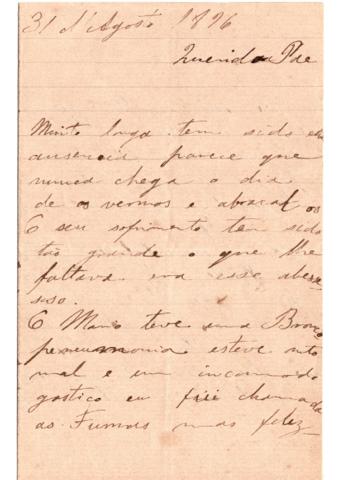 31 d'Agosto 1896
Querido Pae
Muito longa tem sido esta
ausencia parece que
nunca chega o dia
de os vermos e abraçal os
O seu sofrimento tem sido
tão grande o que lhe
faltava era esse abcesso
O Mario teve uma Bronco
pneumonia esteve mto
mal e um incomodo
gastico eu fui chamada
as Furnas mas feliz